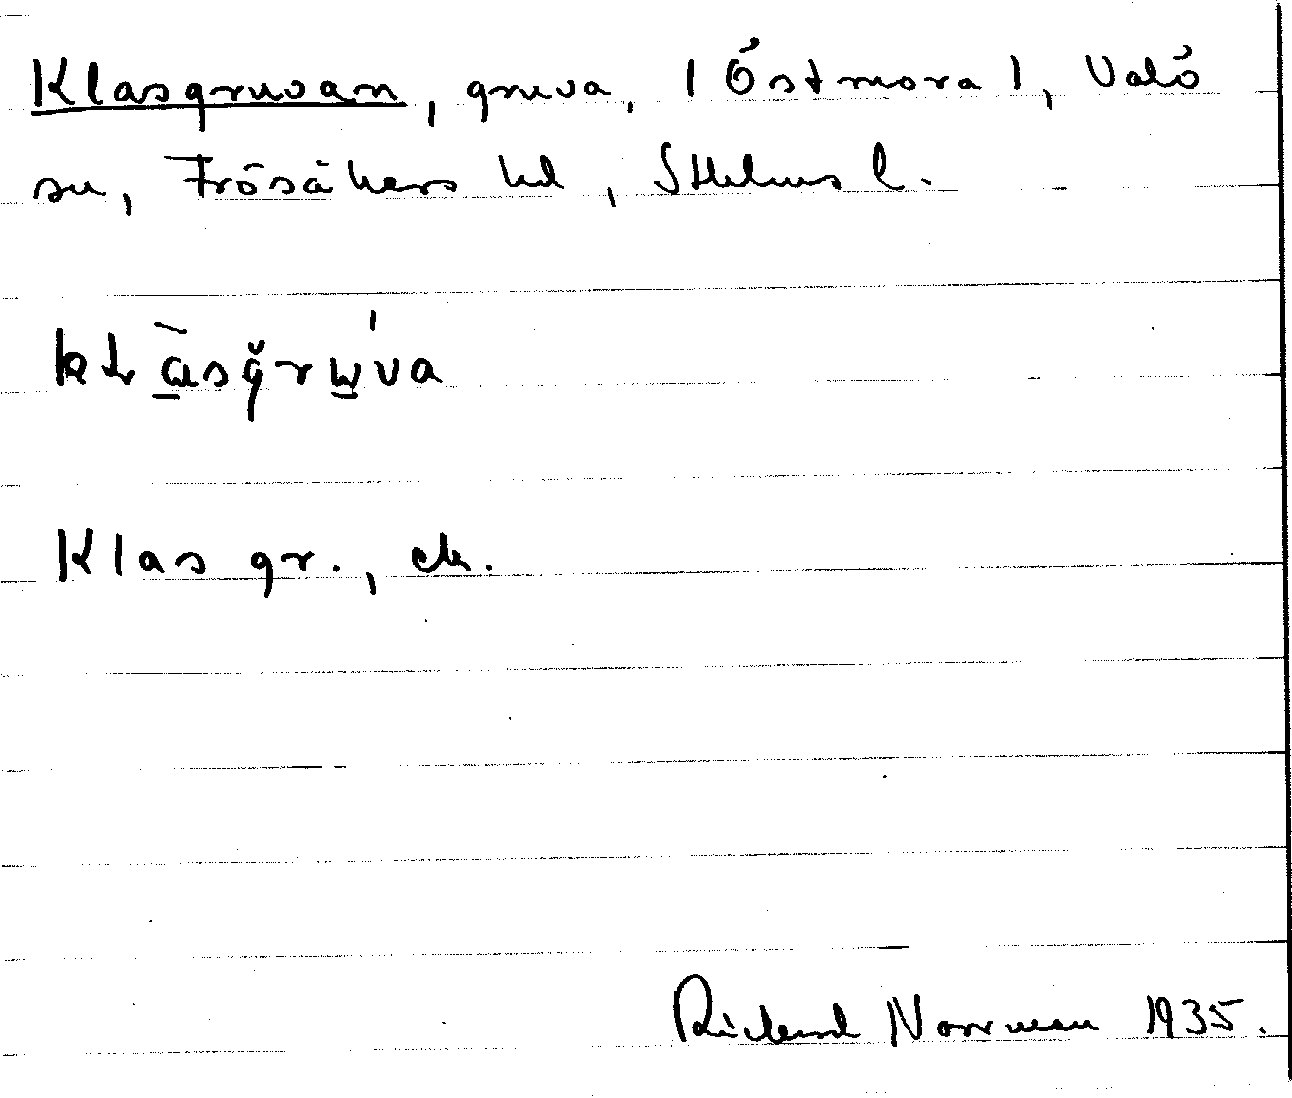 Klasgruvan, gruva, (Östmora), Valö
sn, Frösåkers hd, Sthlms l.
kłà̲sğru̲̍va
Klas gr., ek.
Rickard Norrman 1935.